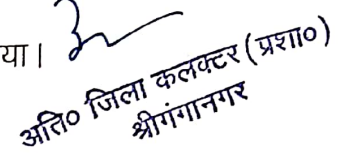 या।
अति० जिला कलक्टर (प्रशा०)
श्रीगंगानगर